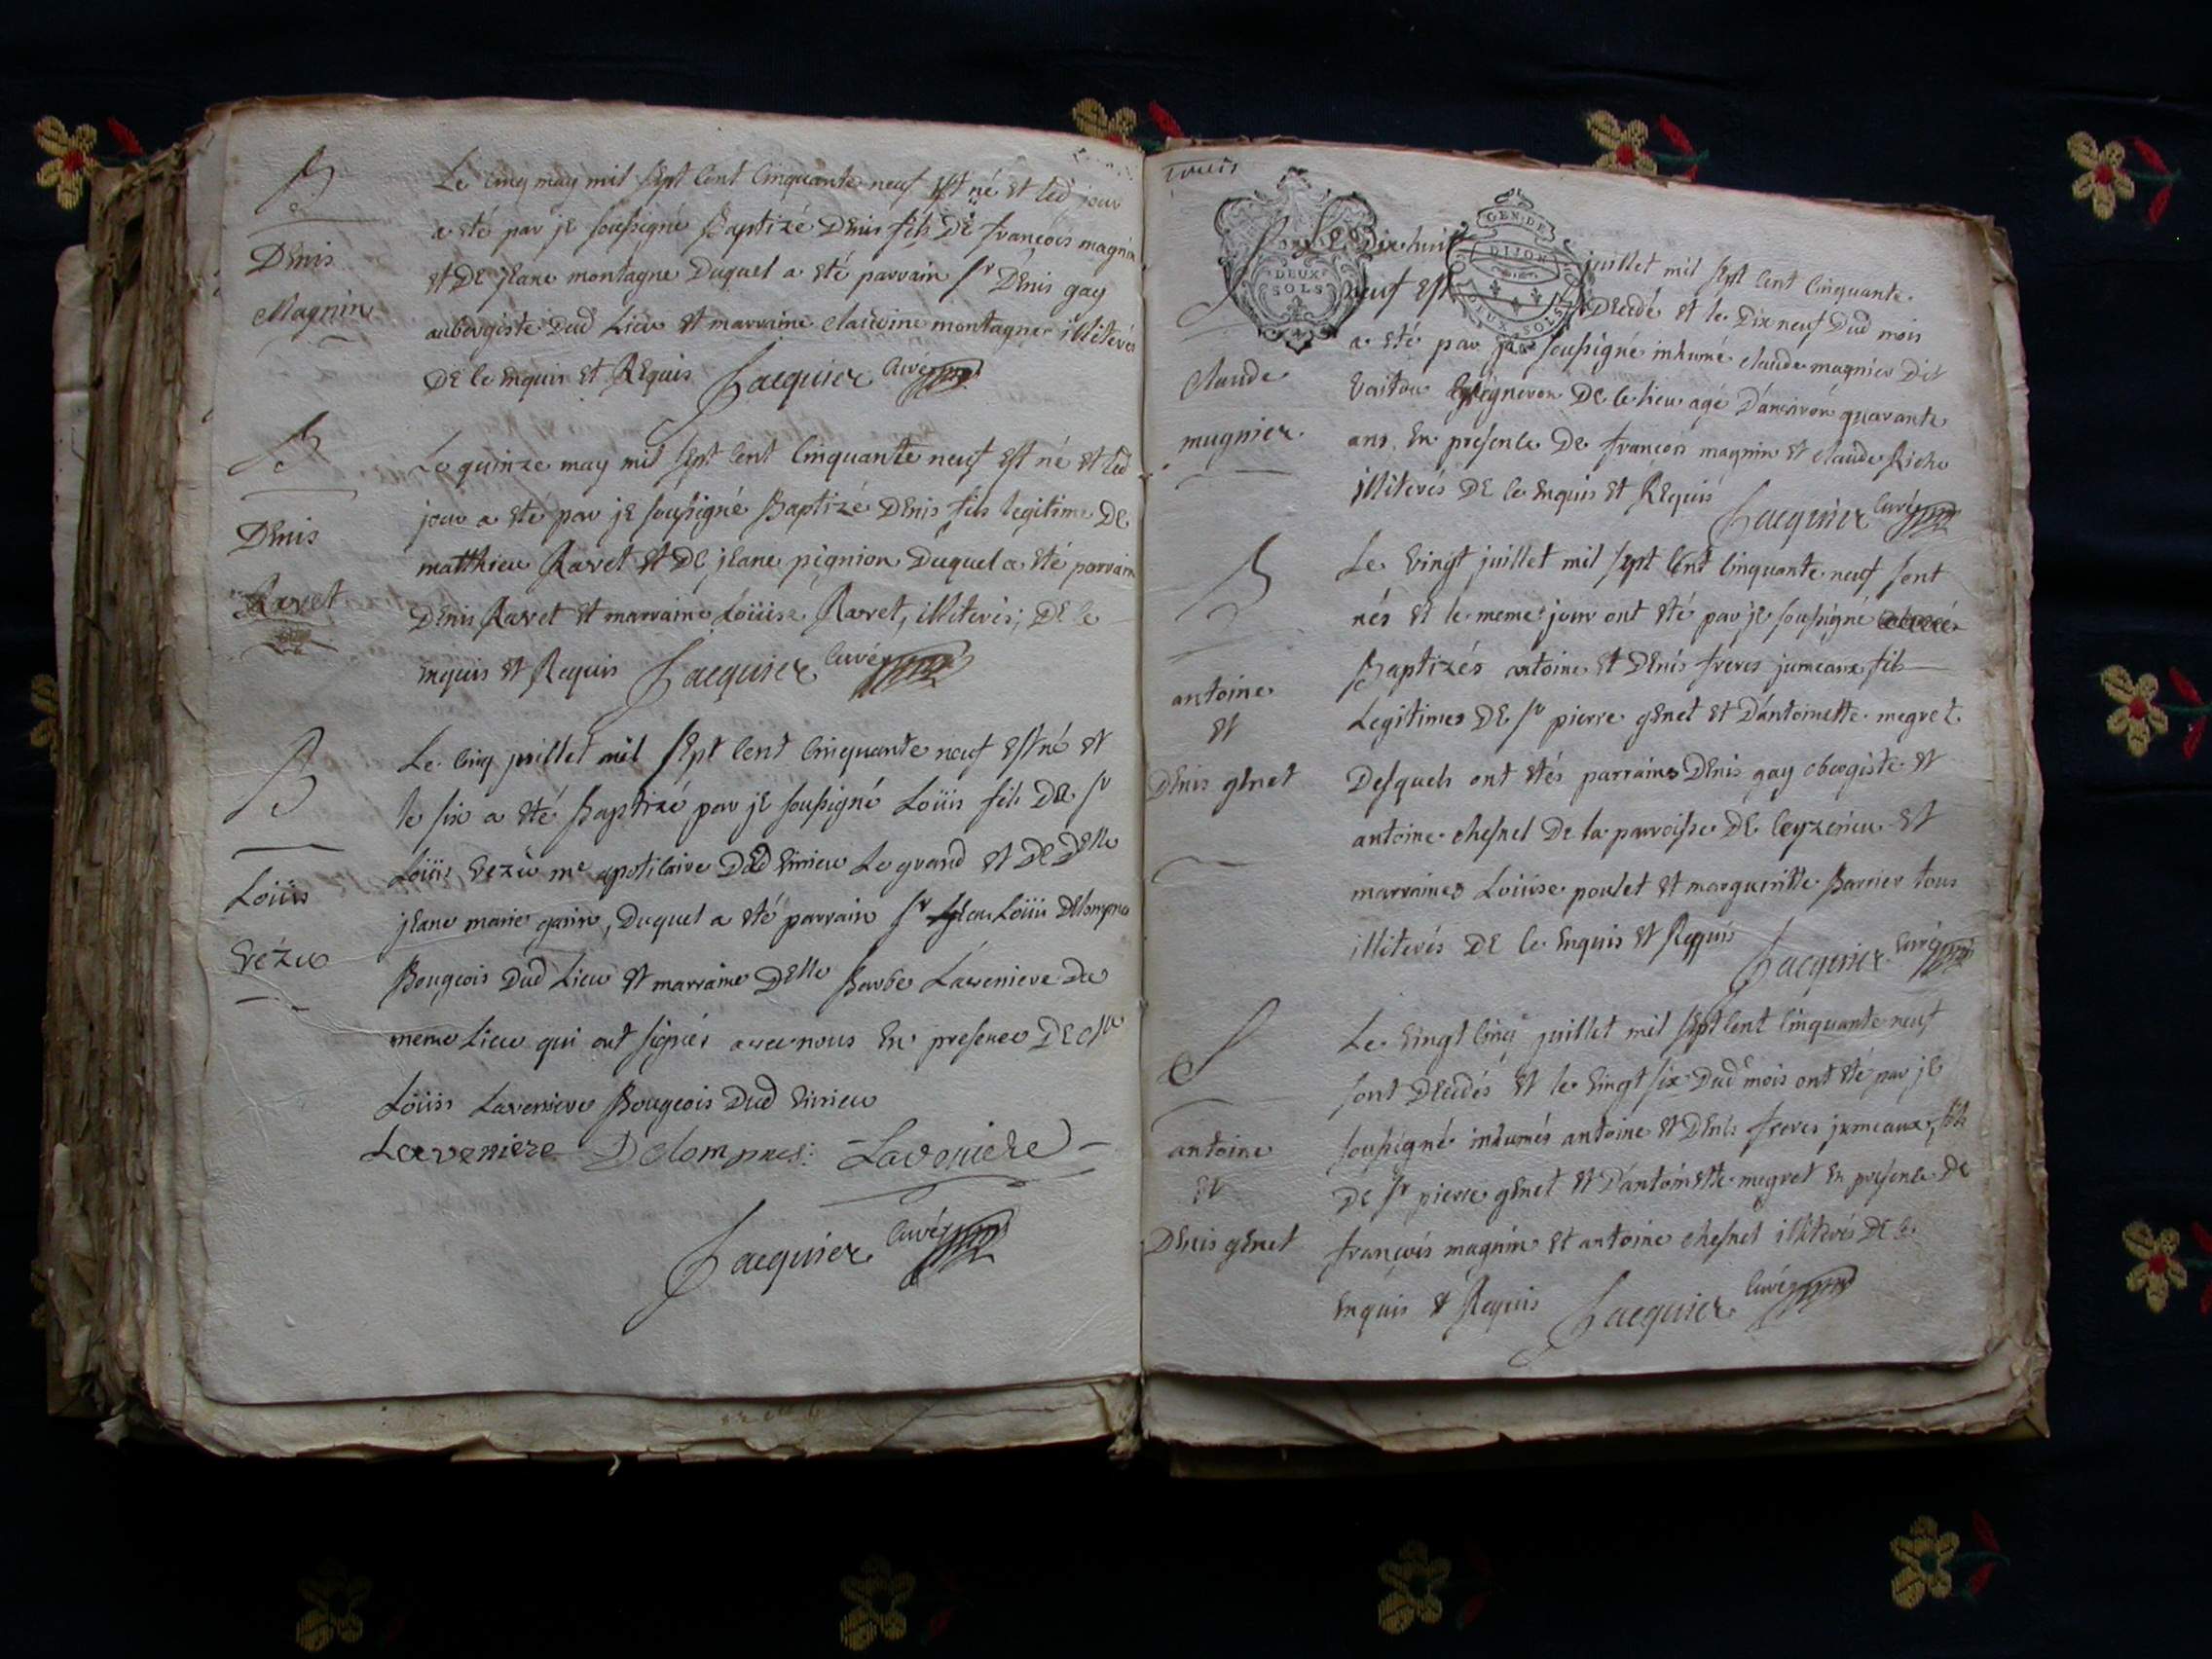 B
Denis
Magnin
Le cinq may mil sept cent cinquante neuf est né et led jour
a eté par je soussigné Baptizé Denis fils De françois magnin
et De jeane montagne Duquel a eté parrain sr Denis gay
aubergiste Dud Lieu et marraine claudine montagne illiterés
De ce enquis et Requis Jacquier curé
B
Denis
Ravet
Le quinze may mil sept cent cinquante neuf est né et led
jour a eté par je soussigné Baptizé Denis fils legitime De
matthieu Ravet et De jeane pignion Duquel a eté parrain
Denis Ravet et marraine Loüise Ravet, illiterés, De ce
enquis et Requis Jacquier curé
B
Loüis
vézu
Le cinq juillet mil sept cent cinquante neuf est né et
le six a eté Baptizé par je soussigné Loüis fils De sr
Loüis vezu me apoticaire Dud virieu Le grand et De Delle
jeane marie garin, Duquel a eté parrain sr Loüis Delompnes
Bougeois Dud Lieu et marraine Delle Barbe Laveniere du
meme Lieu qui ont signés avec nous en presence De
Loüis Laveniere Bougeois Dud virieu
Laveniere Delompnes Laveniere
Jacquier curé
DEUX
SOLS
GEN. DE
DIJON
DEUX SOLS
S
claude
mugnier
Le Dix huit juillet mil sept cent cinquante
neuf est Decedé et le Dix neuf Dud mois
a eté par je soussigné inhumé claude mugnier Dit
vigneron De ce lieu agé D'anviron quarante
ans en presence De françois magnin et claude Riche
illiterés De ce enquis et Requis Jacquier curé
B
antoine
et
Denis genet
Le vingt juillet mil sept cent cinquante neuf sont
nés et le meme jour ont eté par je soussigné
Baptizés antoine et Denis freres jumeaux fils
Legitimes De sr pierre genet et D'antoinette megret
Desquels ont etés parrains Denis gay obergiste et
antoine chesnel De la parroisse De ceyzerieu et
marraines Loüise poulet et margueritte Barrier tous
illiterés De ce enquis et Requis Jacquier curé
S
antoine
et
Denis genet
Le vingt cinq juillet mil sept cent cinquante neuf
sont Decedés et le vingt six Dud mois ont eté par je
soussigné inhumés antoine et Denis freres jumeaux fils
De sr pierre genet et D'antoinette megret en presence De
françois magnin et antoine chesnel illiterés De ce
enquis et Requis Jacquier curé